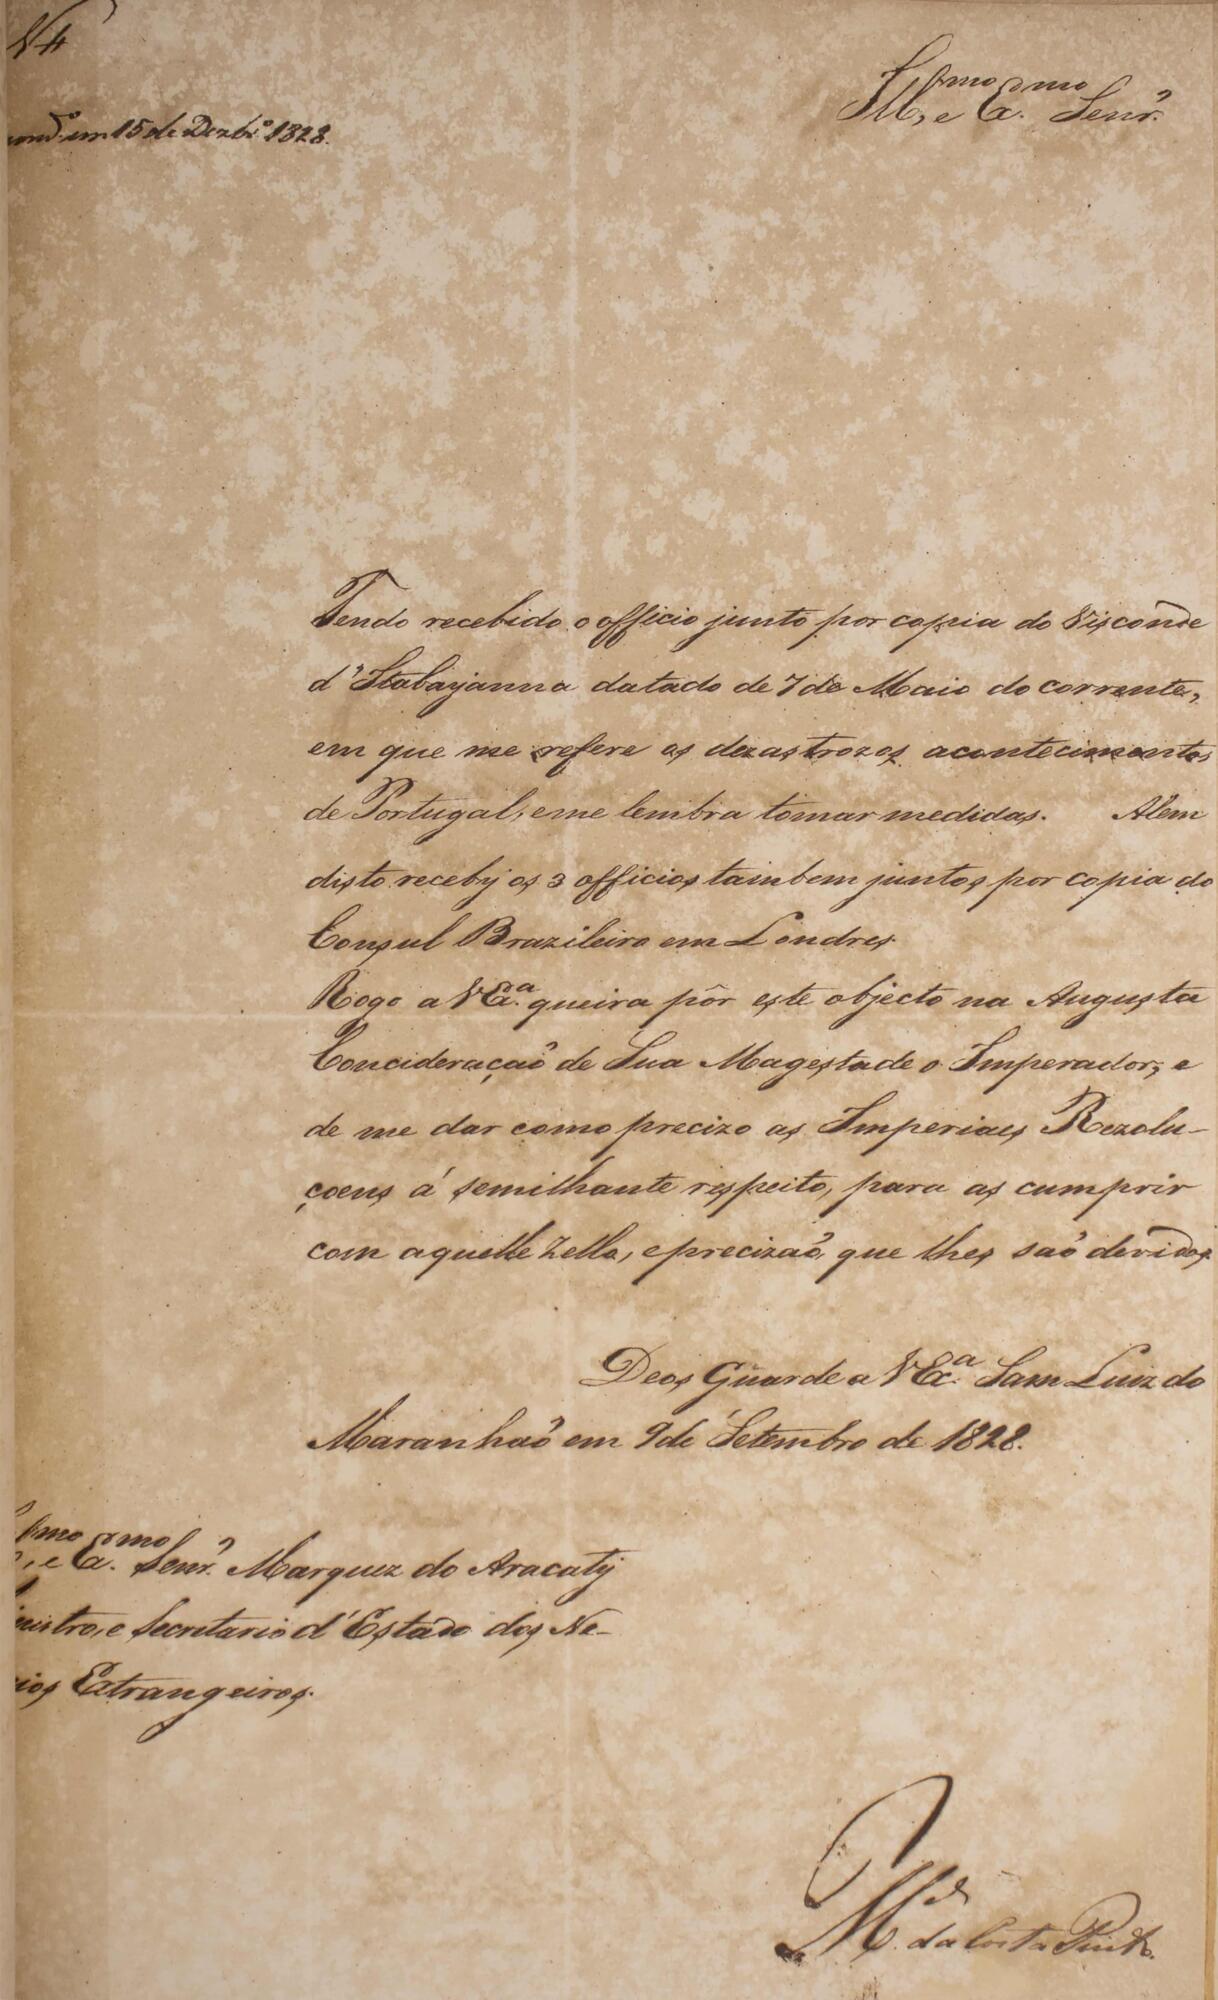 N 4
Ill.mo e Ex.mo Senr.
em 15 de Dezbr.o 1828.
Tendo recebido o officio junto por copia do Visconde
d'Itabayanna datado de 7 de Maio do corrente,
em que me refere os dezastrozos acontecimentos
de Portugal, e me lembra tomar medidas. Alem
disto receby os 3 officios tambem juntos por copia do
Consul Brazileiro em Londres.
Rogo a VEx.a queira pôr este objecto na Augusta
Concideração de Sua Magestade o Imperador, e
de me dar como precizo as Imperiaes Rezolu-
çoens á semilhante respeito, para as cumprir
com aquelle Zello, e precizaõ, que lhes saõ devidos.
Deos Guarde a VEx.a Sam Luiz do
Maranhaõ em 9 de Setembro de 1828.
Ill.mo e Ex.mo Senr. Marquez do Aracaty
inistro, e Secretario d'Estado dos Ne-
cios Extrangeiros.
M.el da Costa Pinto.